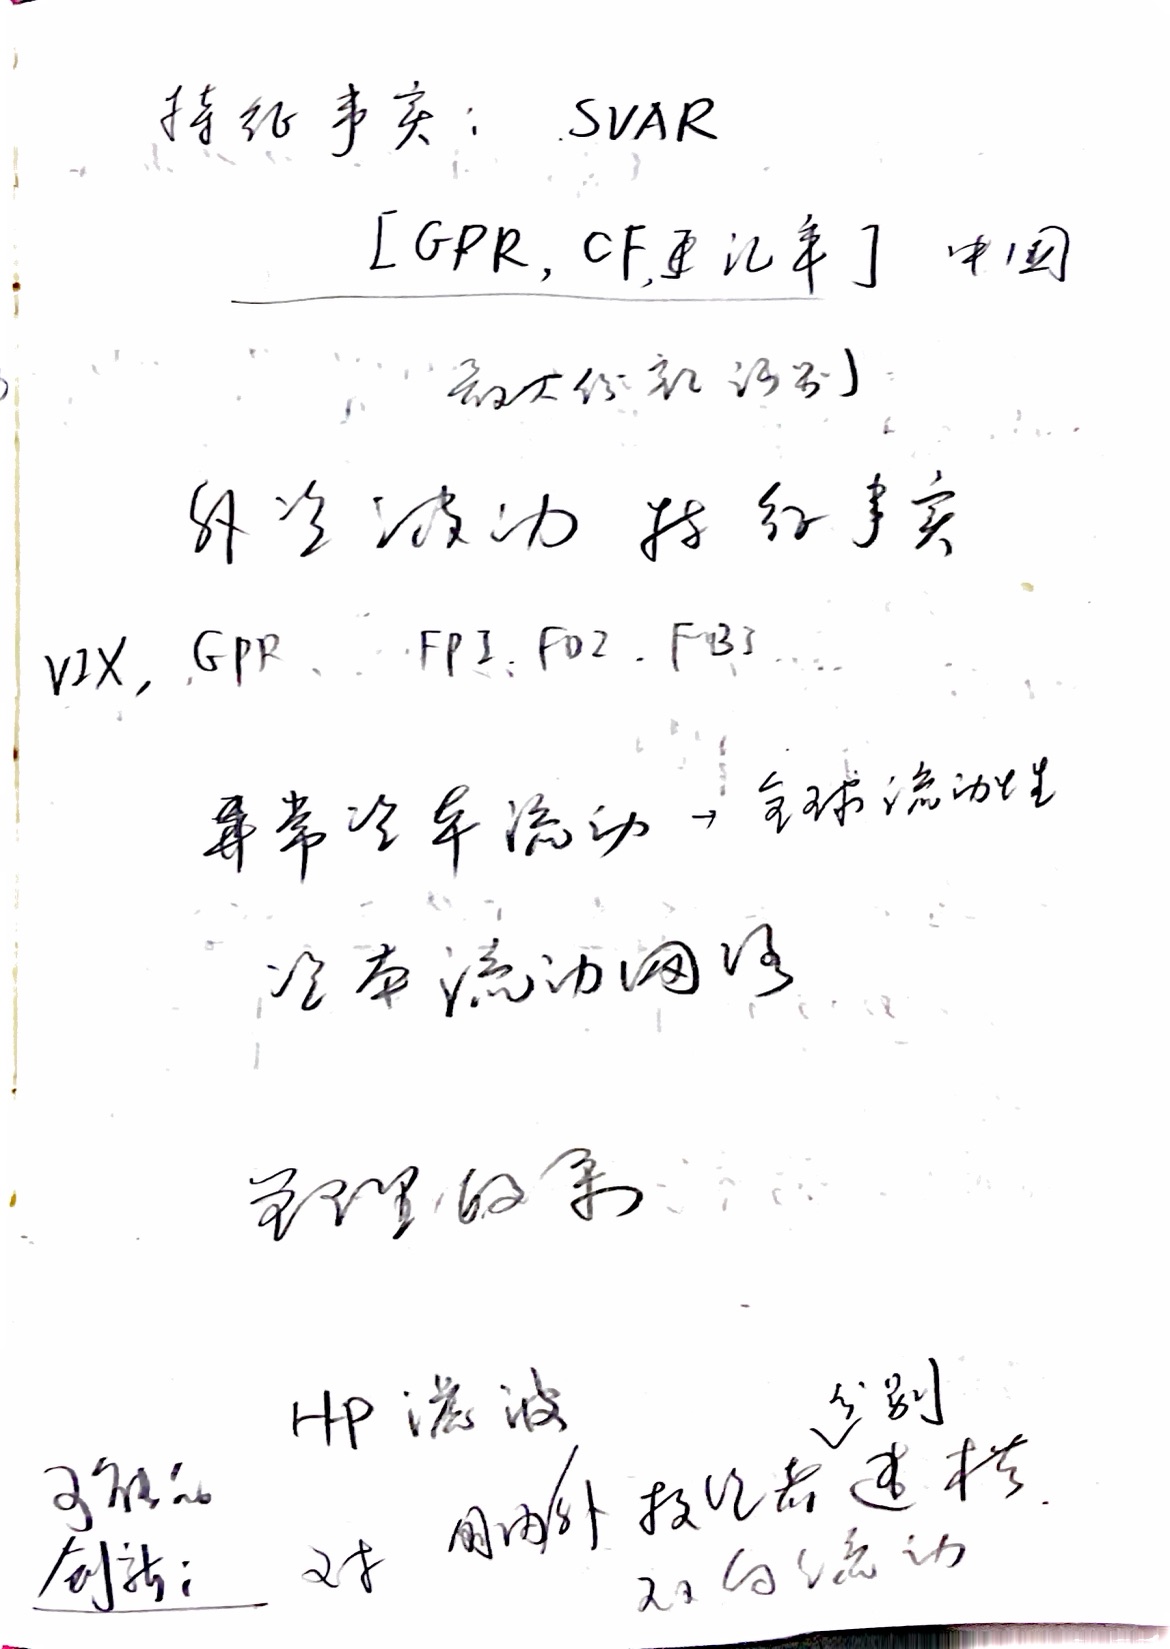 特征事实: SVAR
[GPR, CF, 汇率] 中国
最大份额识别
外资波动 特征事实
VIX, GPR、 FPI. FDI. FBI
异常资本流动 → 全球流动性
资本流动网络
管理政策
HP 滤波
可能的
创新:
对 国内外投资者分别建模.
双向流动